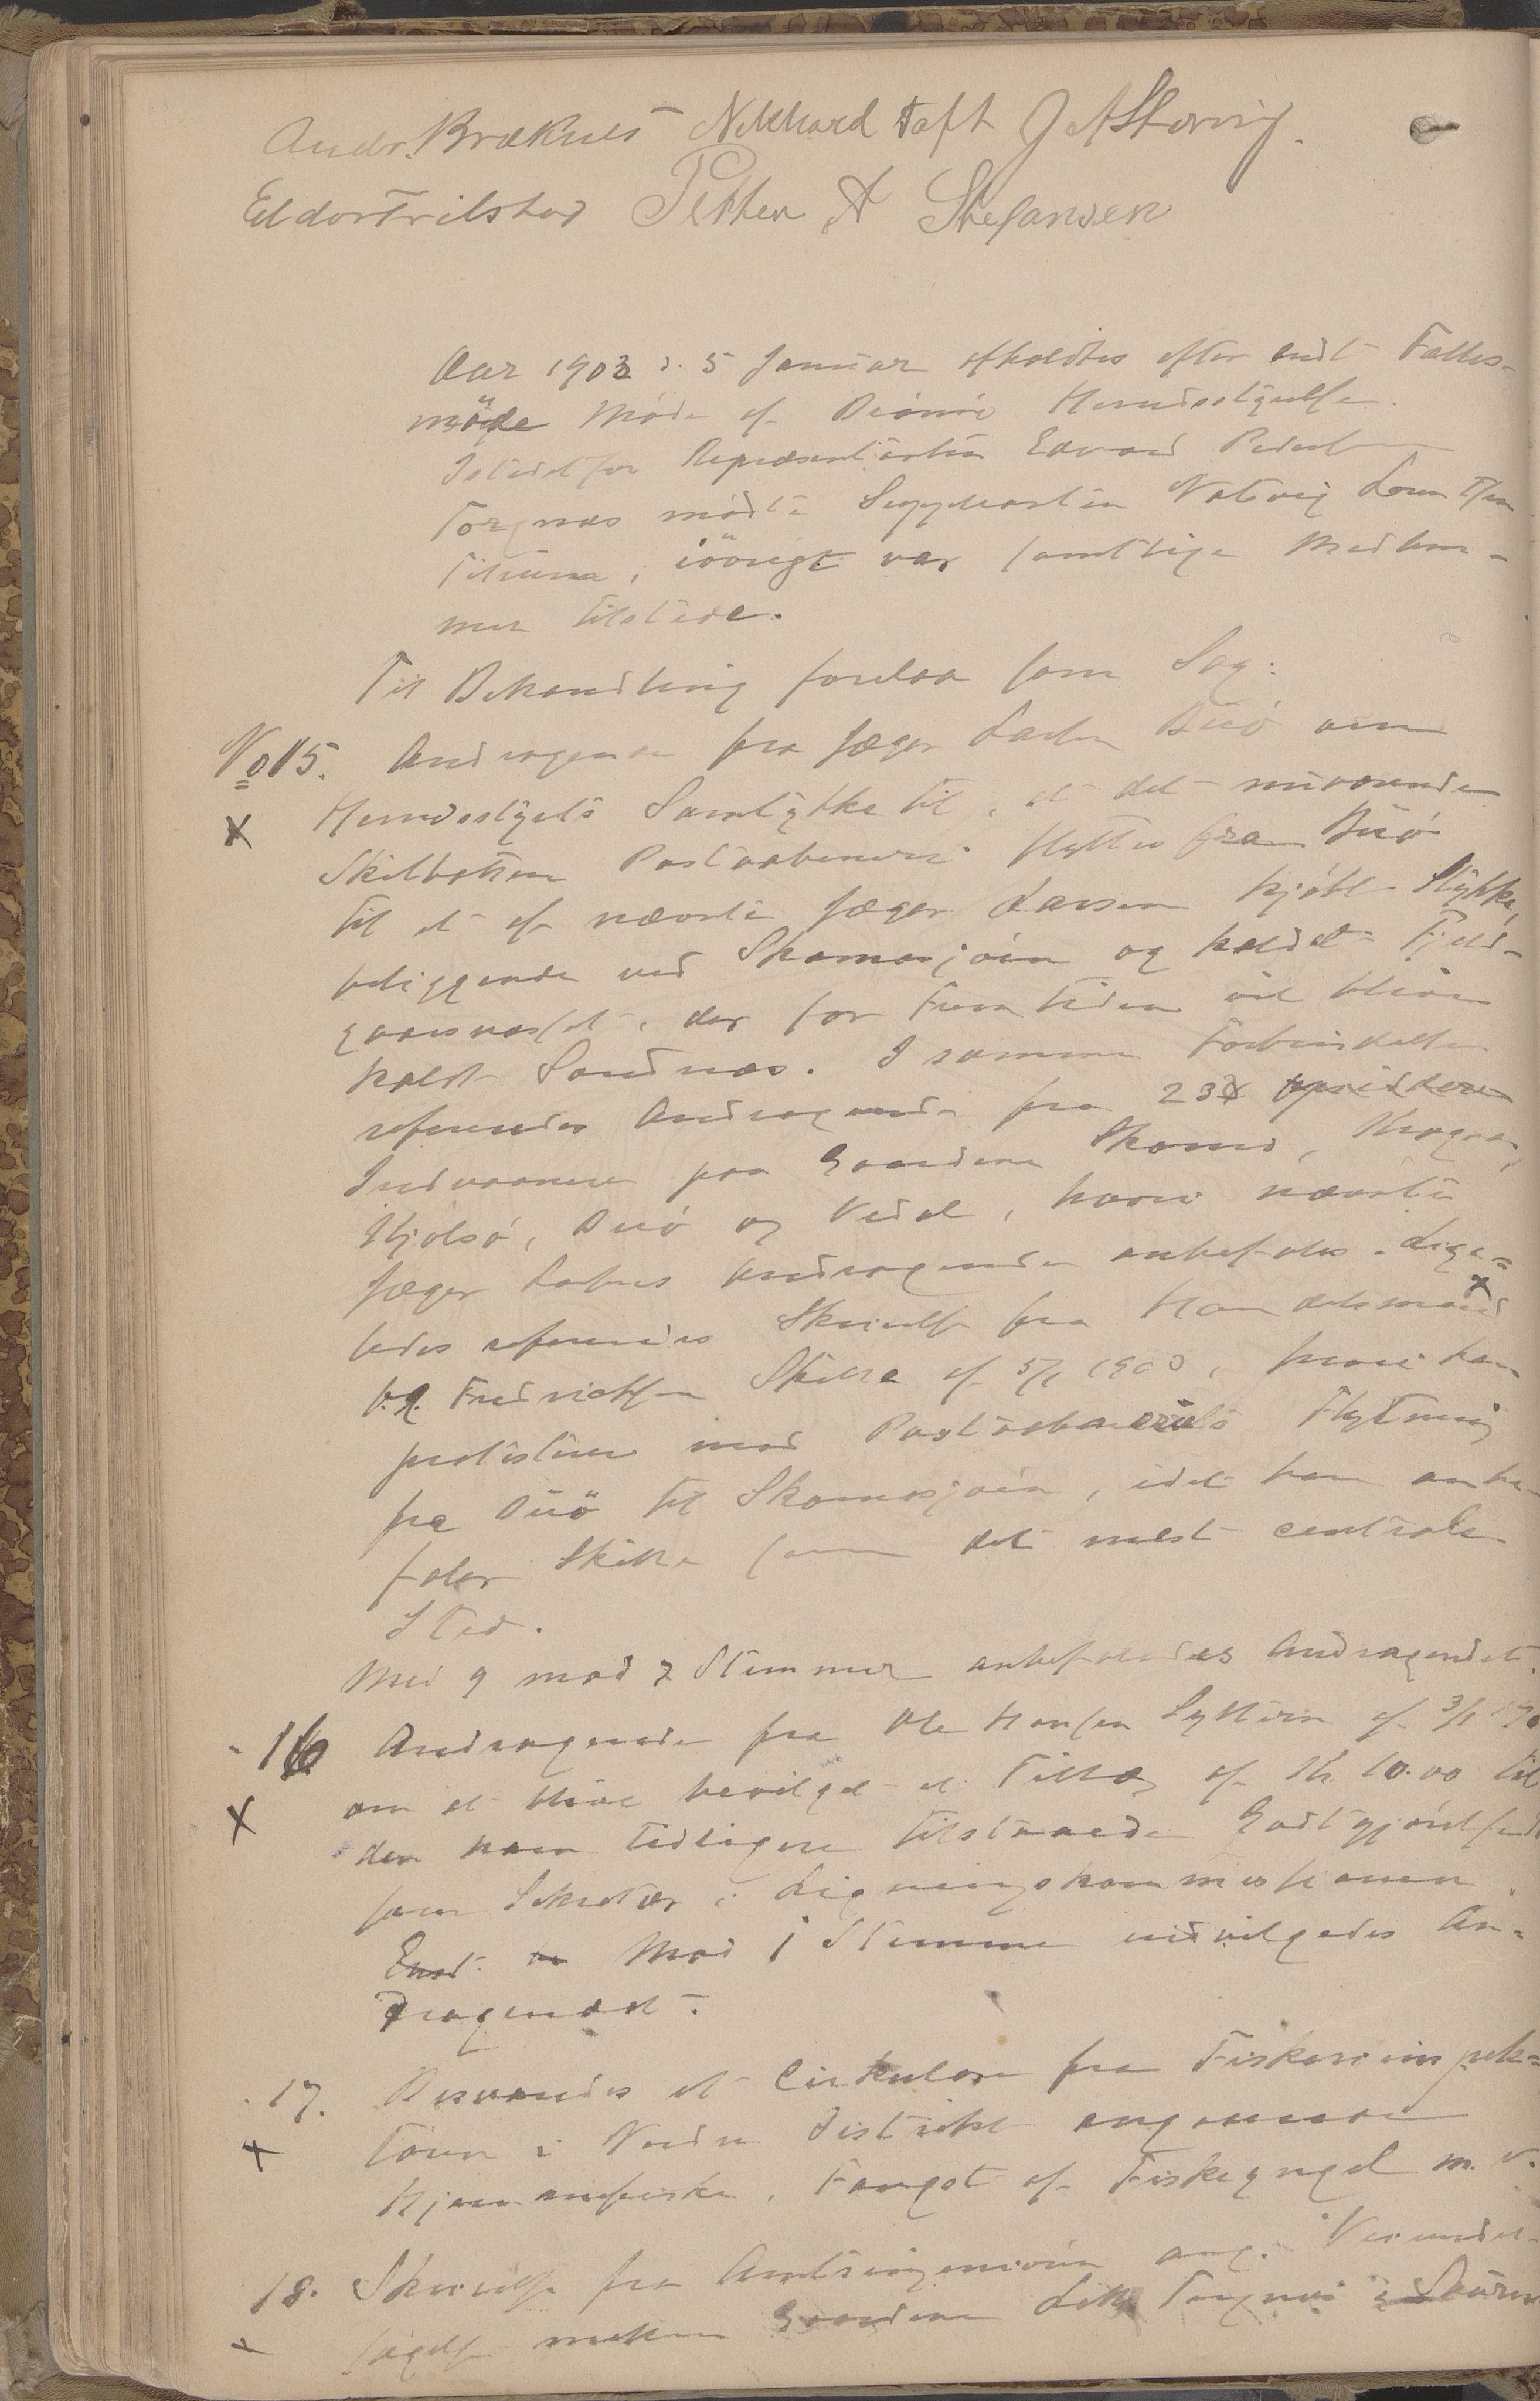 Andr. Brækhus Nekhard Toft J A Storvig.
Eldor Trilstad Petter A Stefansen
Aar 1903 d. 5 Januar afholdtes efter endt Fælles-
møde Møde af Brønnø Herredsstyrelse.
Istedetfor Repræsentanten Edvard Pedersen
Torgnæs mødte Suppleanten
Tilrum, iøvrigt var samtlige Medlem-
mer tilstede.
Til Behandling forelaa som Sag:
No 15. Andragende fra Jæger Larsen Buø om
Herredsstyrets Samtykke til, at det nuværende
Skilbotten Postaabneri flyttes fra Buø
til et af nævnte Jæger Larsen kjøbt Stykke,
beliggende ved Skomosjøen og kaldet Fjeld-
, der for Fremtiden vil blive
kaldt Sandnæs. I samme Forbindelse
refereredes Andragende fra 23
Indvaanere paa Gaardene Skomo,
Kjølsø, Buø og Vedal, hvori nævnte
Jæger Larsens Andragende anbefales. Lige-
ledes refereredes Skrivelse fra Handelsmand
Fredriksen Skille af 5/1 1903, hvori han
protesterer mod Postaabneriets Flytning
fra Buø til Skomosjøen, idet han anbe-
faler Skille som det mest centrale
Sted.
Med 9 mod 7 Stemmer anbefaledes Andragendet.
" 16 Andragende fra Ole Hansen af 3/1
om at blive bevilget et Tillæg af Kr. 10.00 til
den ham tidligere tilstaaede Godtgjørelse
som Sekretær i Ligningskommissionen.
Mod 1 Stemme indvilgedes An-
dragendet.
" 17. Besvaredes et Cirkulære fra Fiskeriinspek-
tøren i Nordre Distrikt angaaende
Hjemmefiske, Fangst af Fiskeyngel m. v.
" 18. Skrivelse fra Amtsingeniøren ang. Veiunder-
søgelse mellem Gaardene Lille Torgnæs